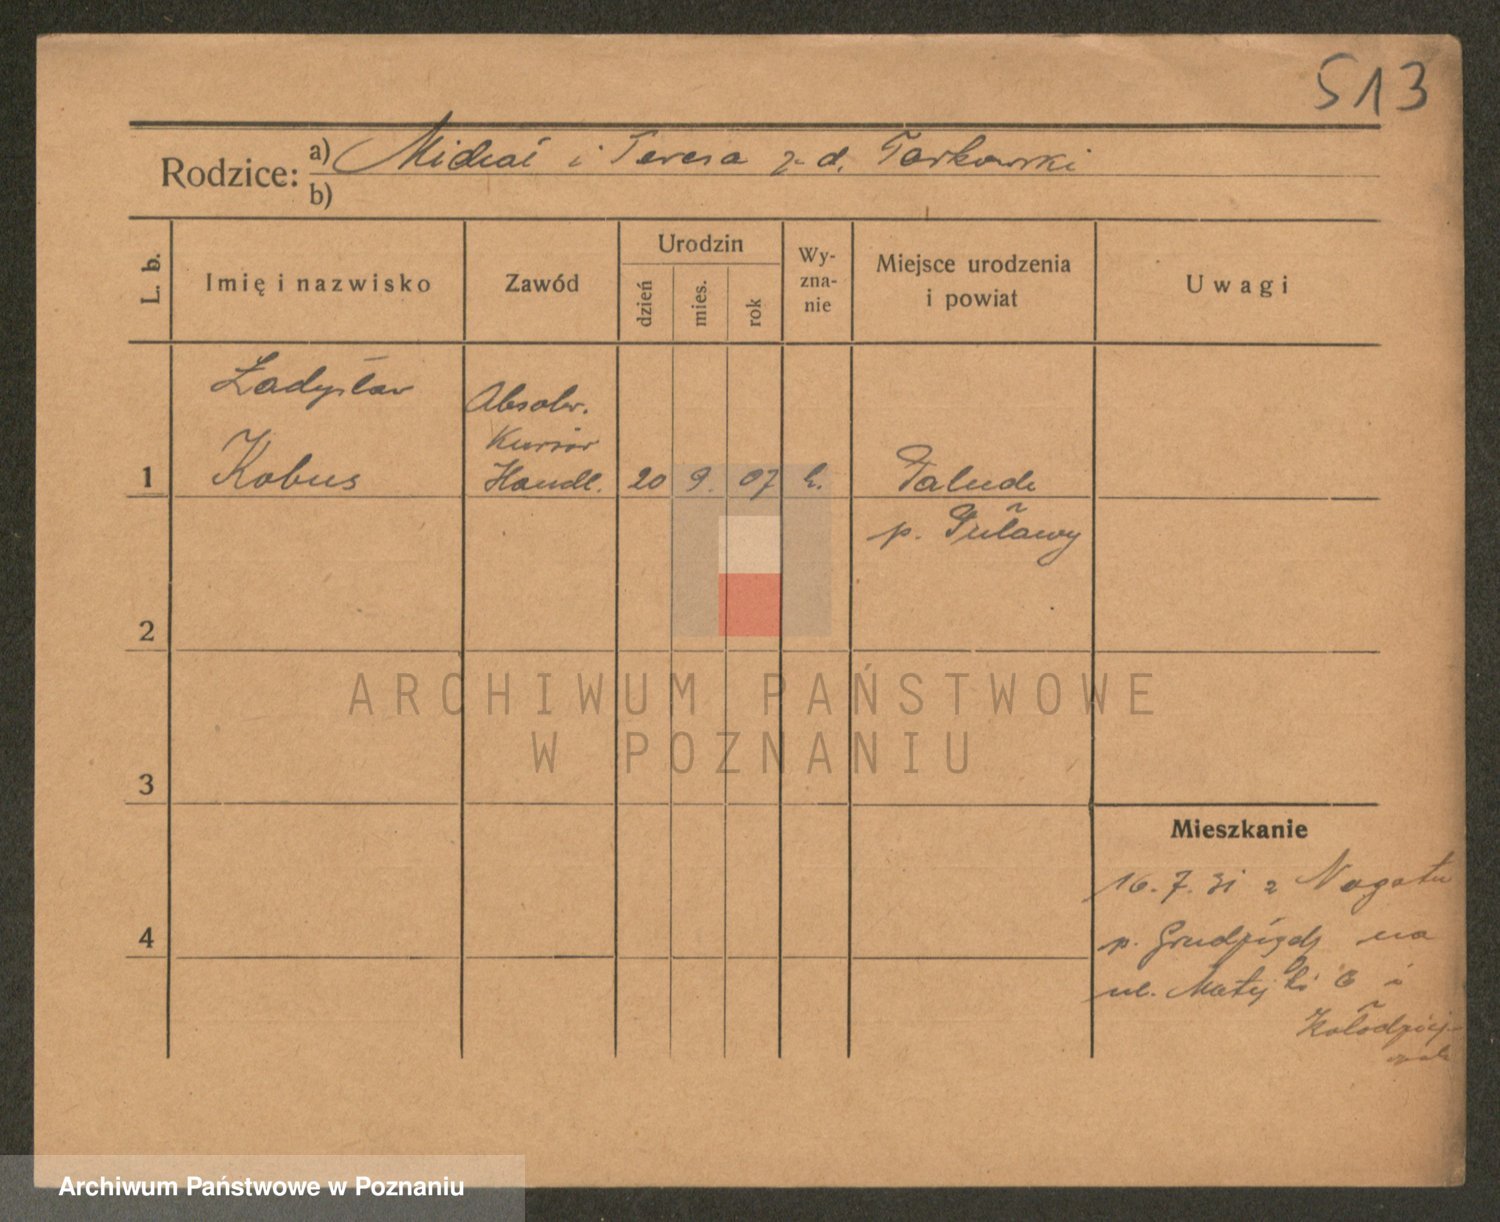 513
Rodzice: a) Michał i Teresa z d. Tarkowski
b)
L. b.
Imię i nazwisko
Zawód
Urodzin
dzień
mies.
rok
Wy-
zna-
nie
Miejsce urodzenia
i powiat
Uwagi
Ładysław
Kobus
Absolw.
Kursów
Handl.
1
20
9.
07
k.
p. Puławy
2
3
4
Mieszkanie
16.7.31 z
p. Grudziądz na
ul. Matejki 6 i
ARCHIWUM PAŃSTWOWE
W POZNANIU
Archiwum Państwowe w Poznaniu